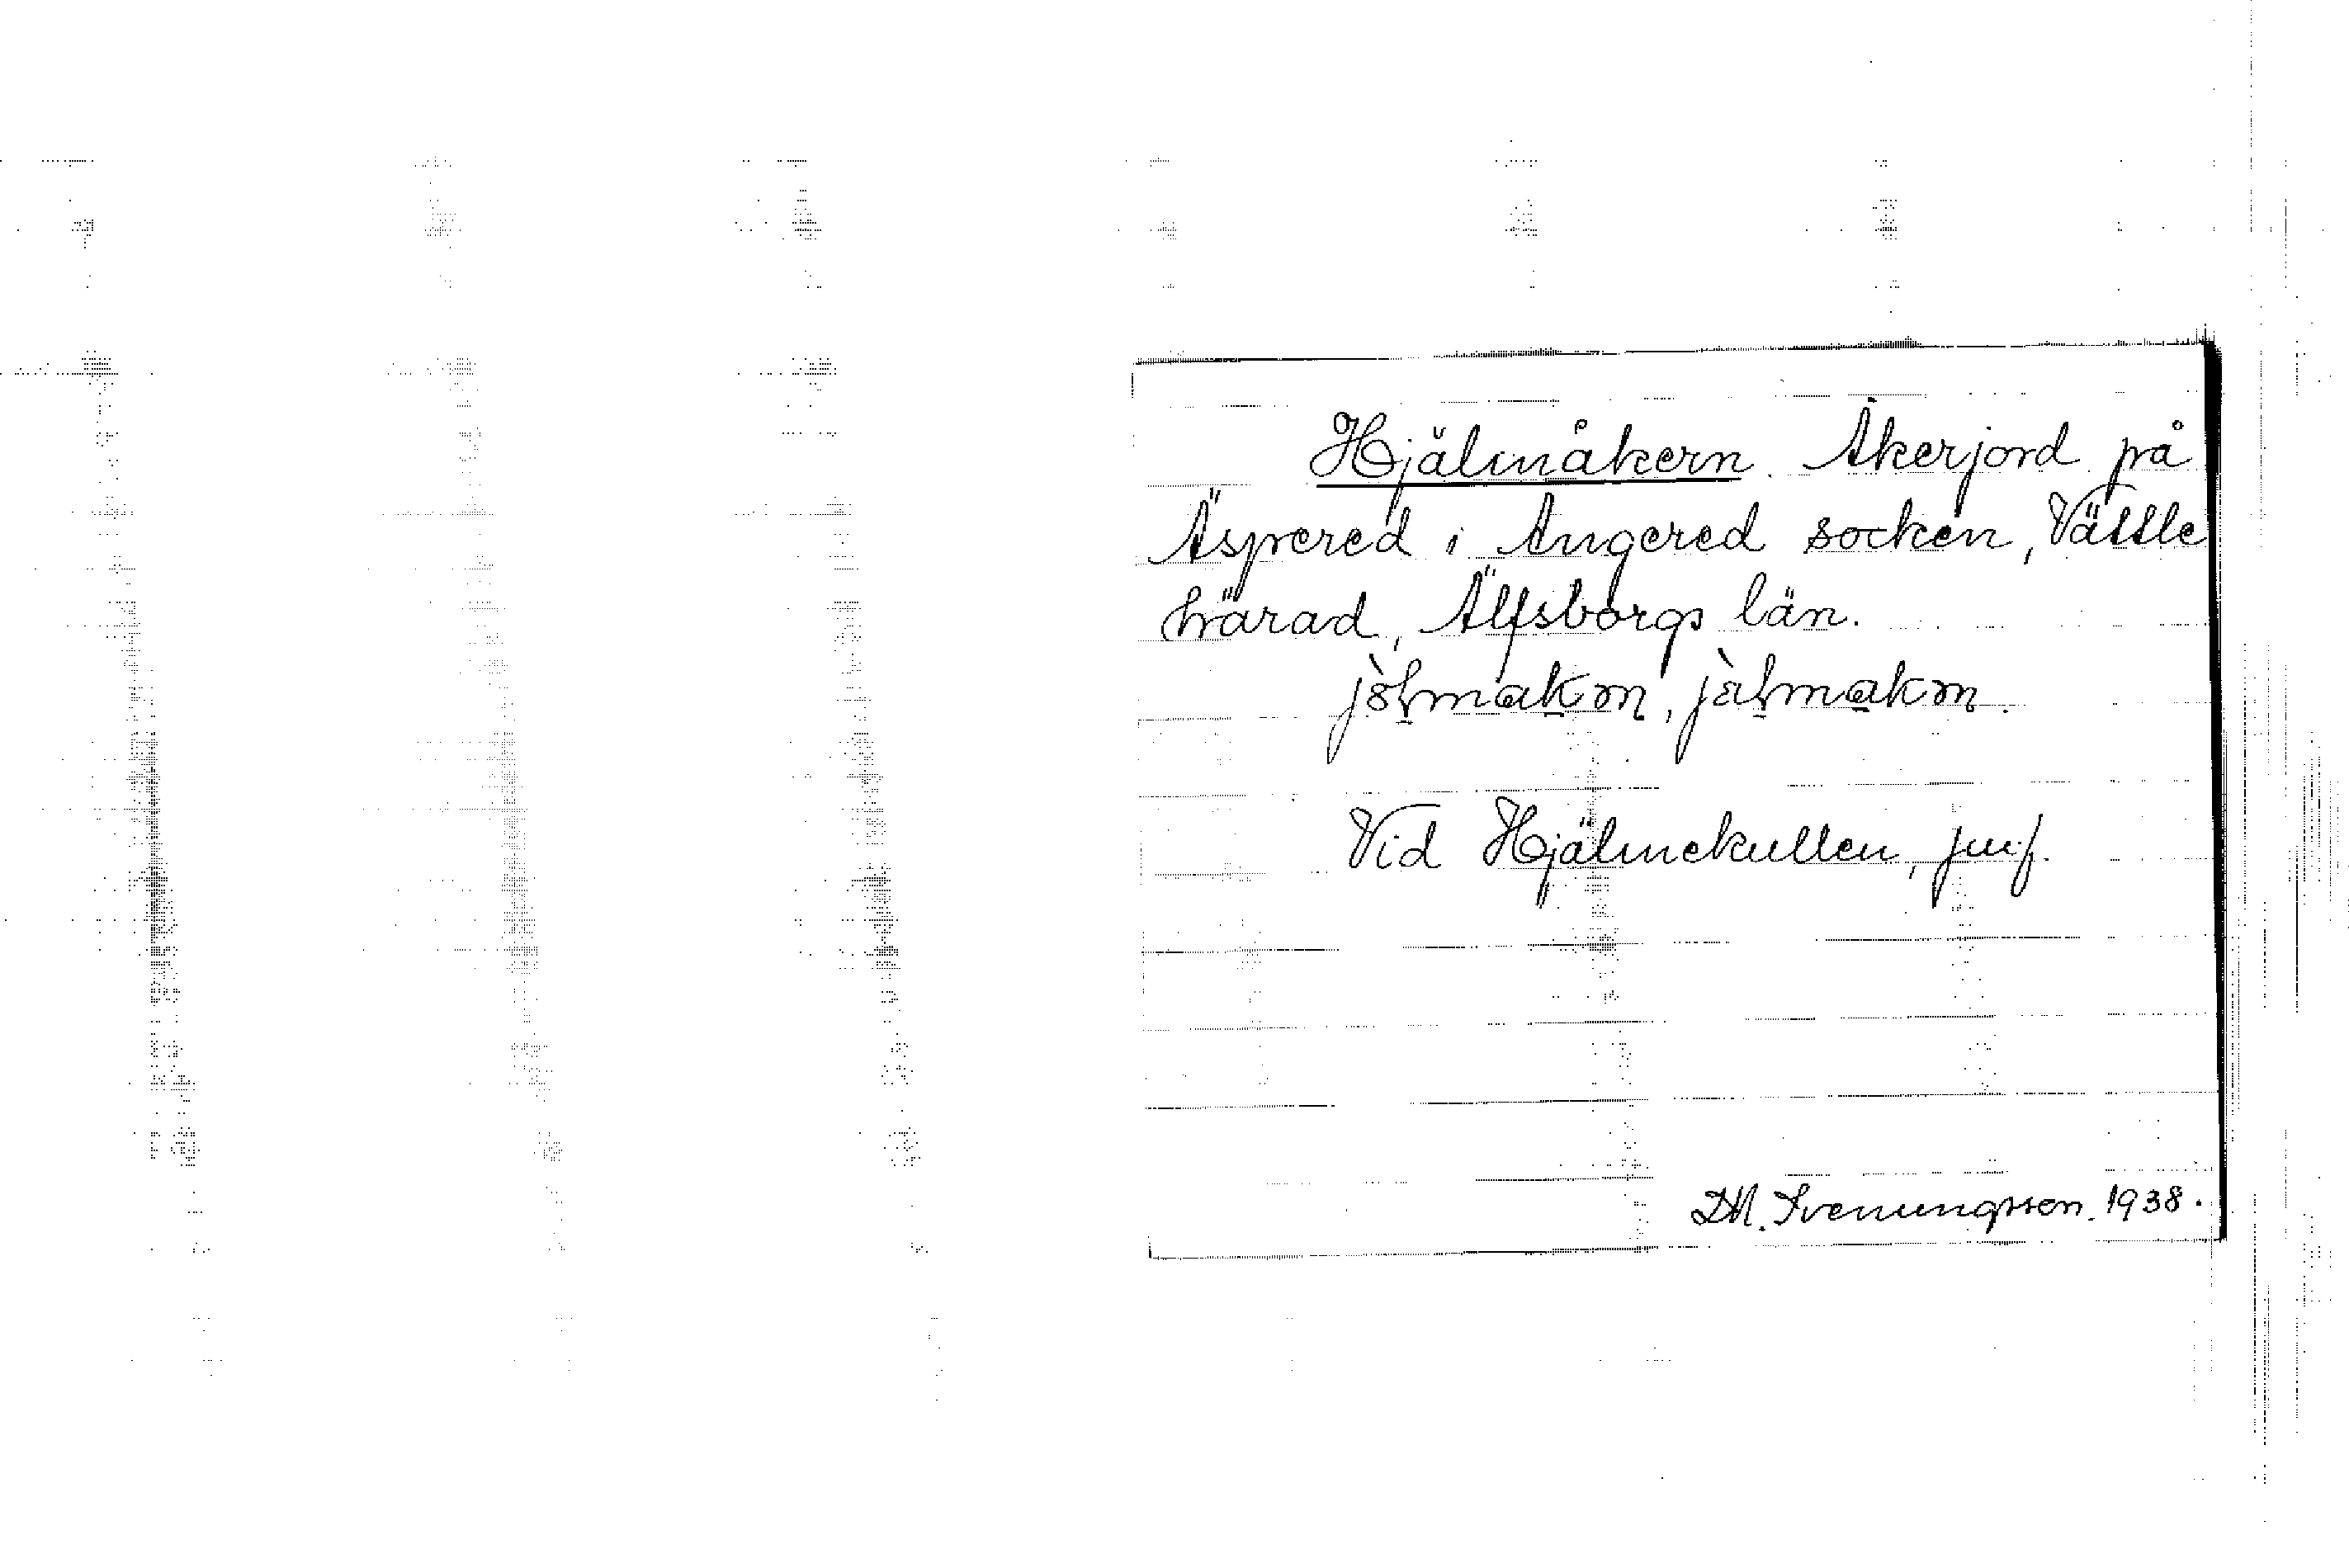 Hjälmåkern. Åkerjord på
Äspered i Angered socken, Vättle
härad, Älfsborgs län.
Vid Hjälmekullen, jmf.
D.M. Svenungsson. 1938.